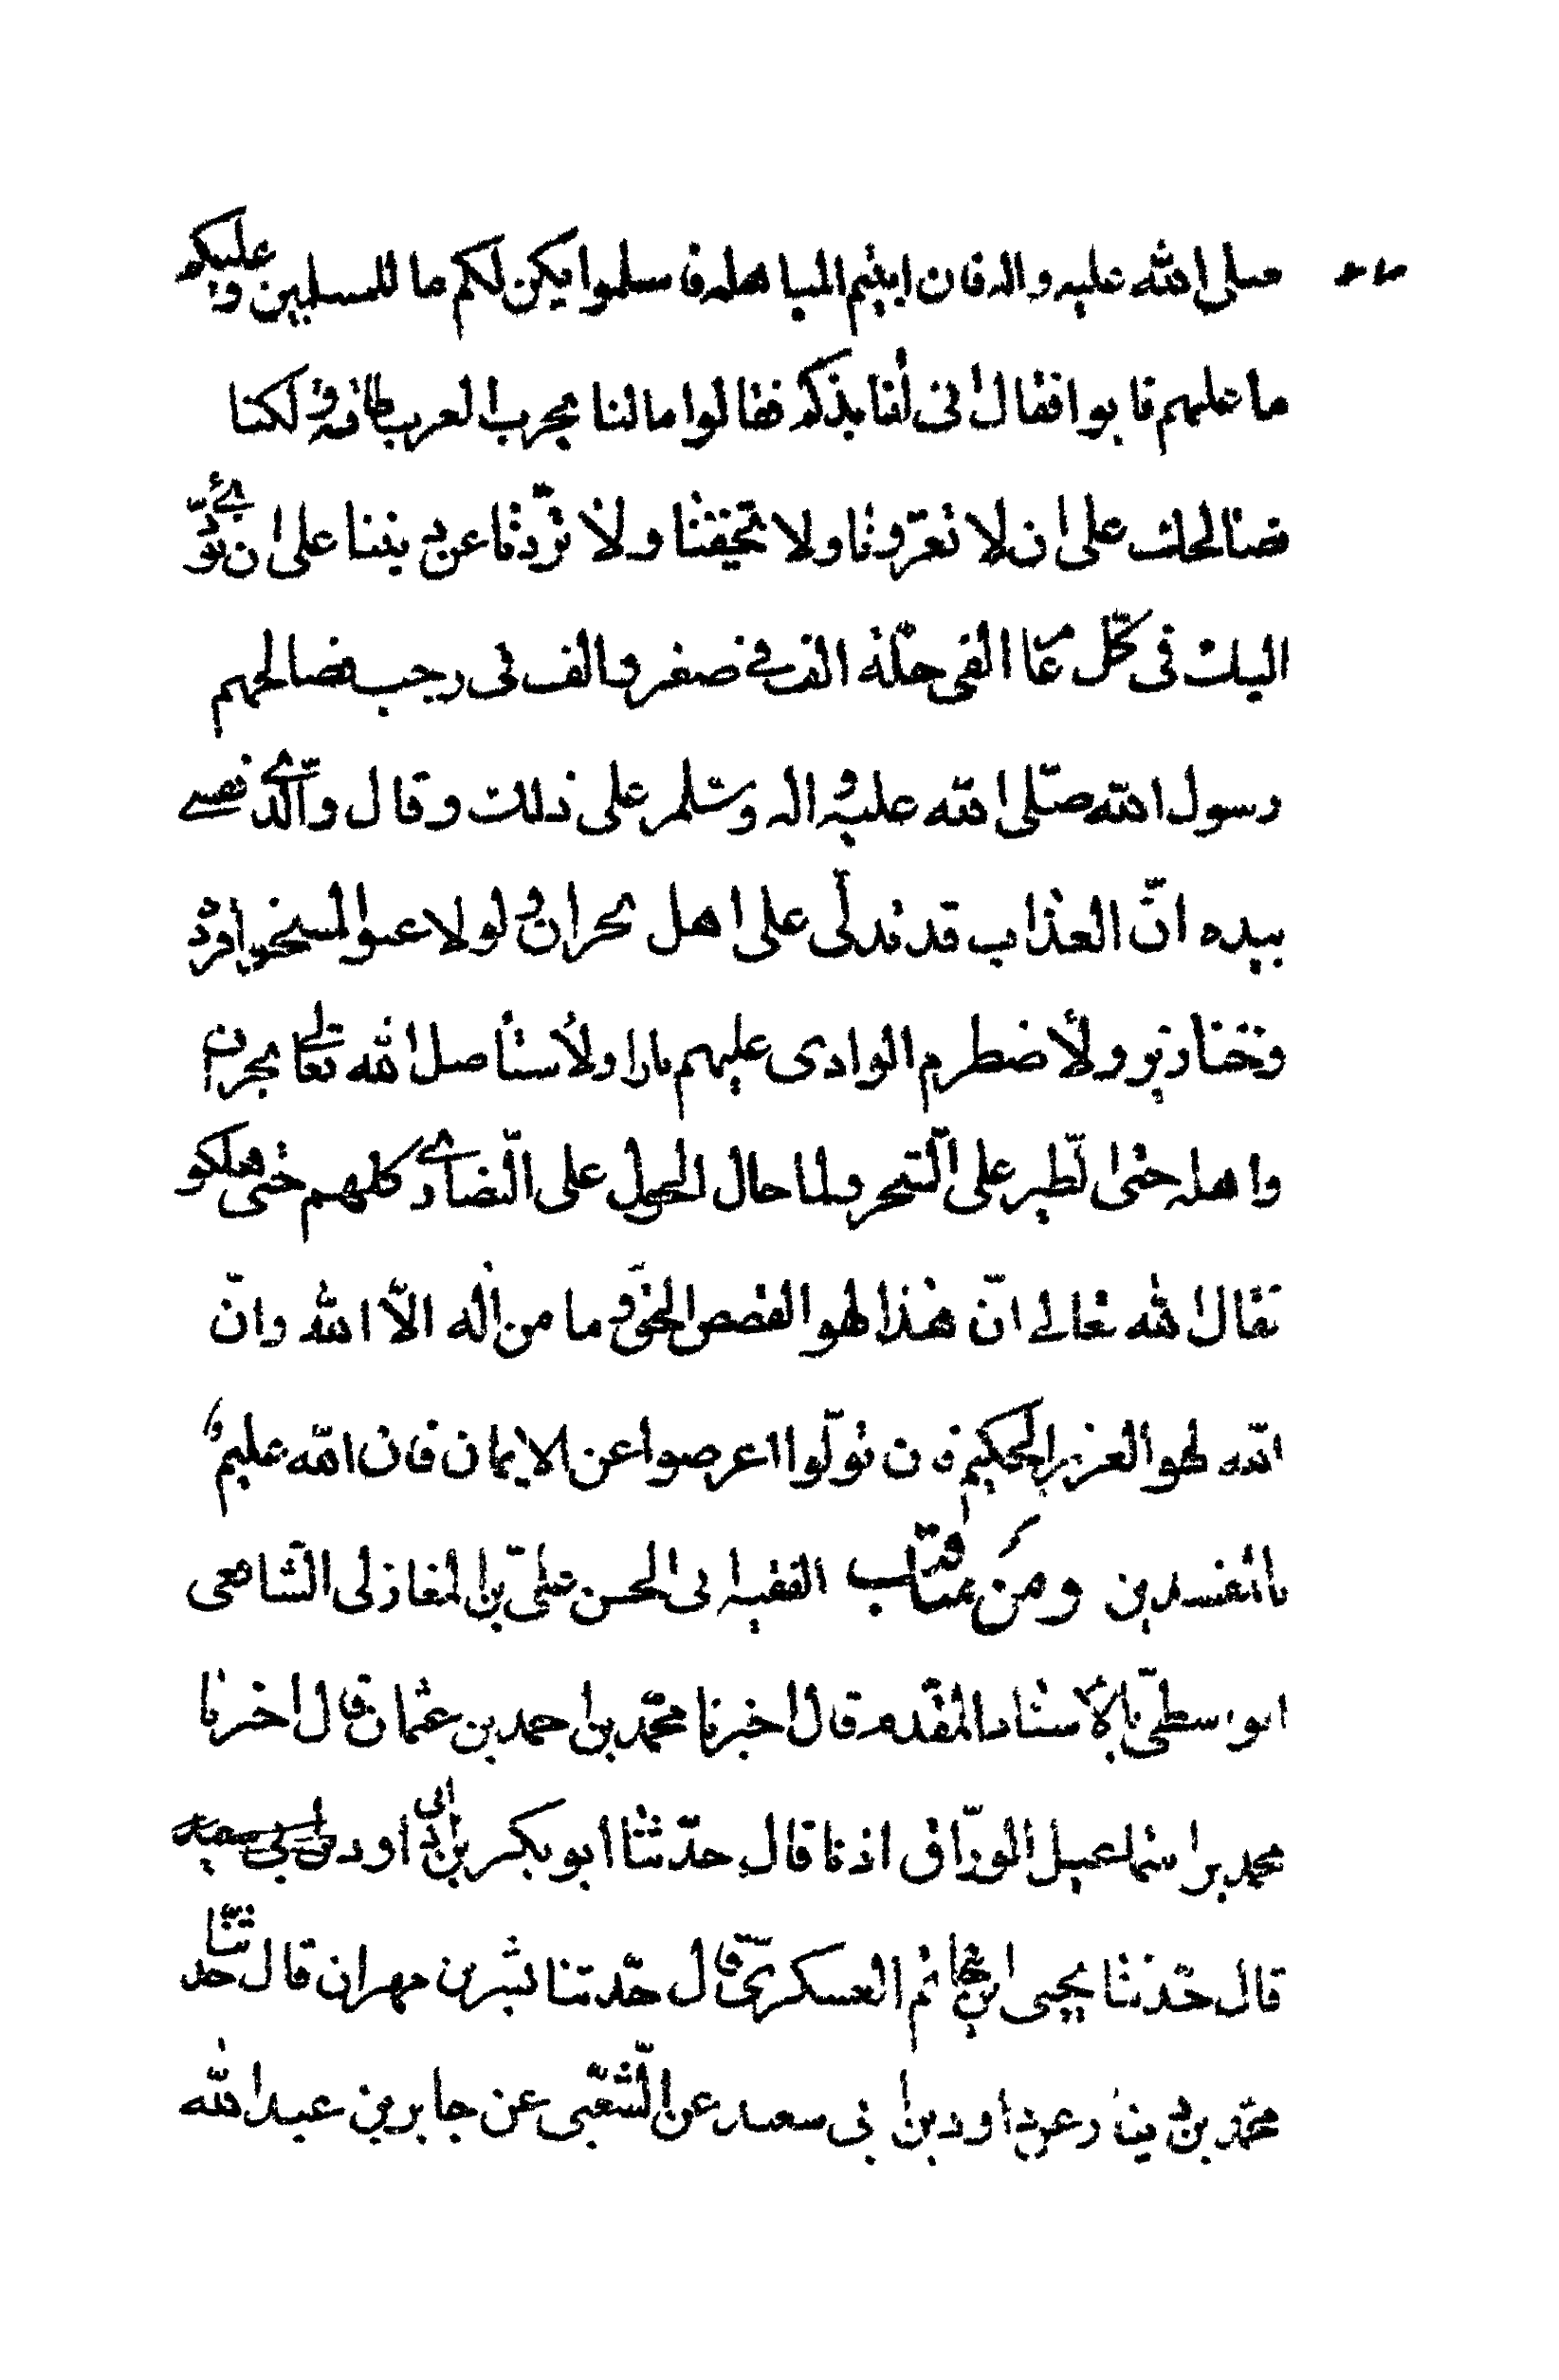 صلى الله عليه واله فان ابيتم المباهله فاسلموا يكن لكم ما للمسلمين وعليكم
ما عليهم فابوا فقال انى انابذكم فقالوا ما لنا بحرب العرب طاقه ولكنا
نصالحك على ان لا تغزونا ولا تخيفنا ولا تردّنا عن ديننا على ان نؤدّي
اليك فى كلّ عام الفى حلّة الف في صفر والف فى رجب فصالحهم
رسول الله صلّى الله عليه واله وسلم على ذلك وقال والّذي نفسي
بيده انّ العذاب قد تدلّى على اهل نجران ولو لاعنوا لمسخوا قردة
وخنازير ولأضطرم الوادى عليهم نارا ولأستأصل الله تعالى نجران
واهله حتى الطير على الشجر ولما حال الحول على النّصارى كلهم حتى هلكوا
فقال الله تعالى انّ هذا لهو القصص الحقّ وما من اله الّا الله وانّ
الله لهو العزيز الحكيم فان تولّوا اعرضوا عن الايمان فان الله عليم
بالمفسدين ومن مناقب الفقيه ابى الحسن علىّ بن المغازلى الشافعى
الواسطىّ بالاسناد المقدّم قال اخبرنا محمّد بن احمد بن عثمان قال اخبرنا
محمد بن اسماعيل الورّاق اذنا قال حدّثنا ابو بكر بن ابى داود
قال حدّثنا يحيى بن حاتم العسكرىّ قال حدّثنا بشر بن مهران قال حدّثنا
محمّد بن دينار عن داود بن ابى سعيد عن الشّعبى عن جابر بن عبد الله